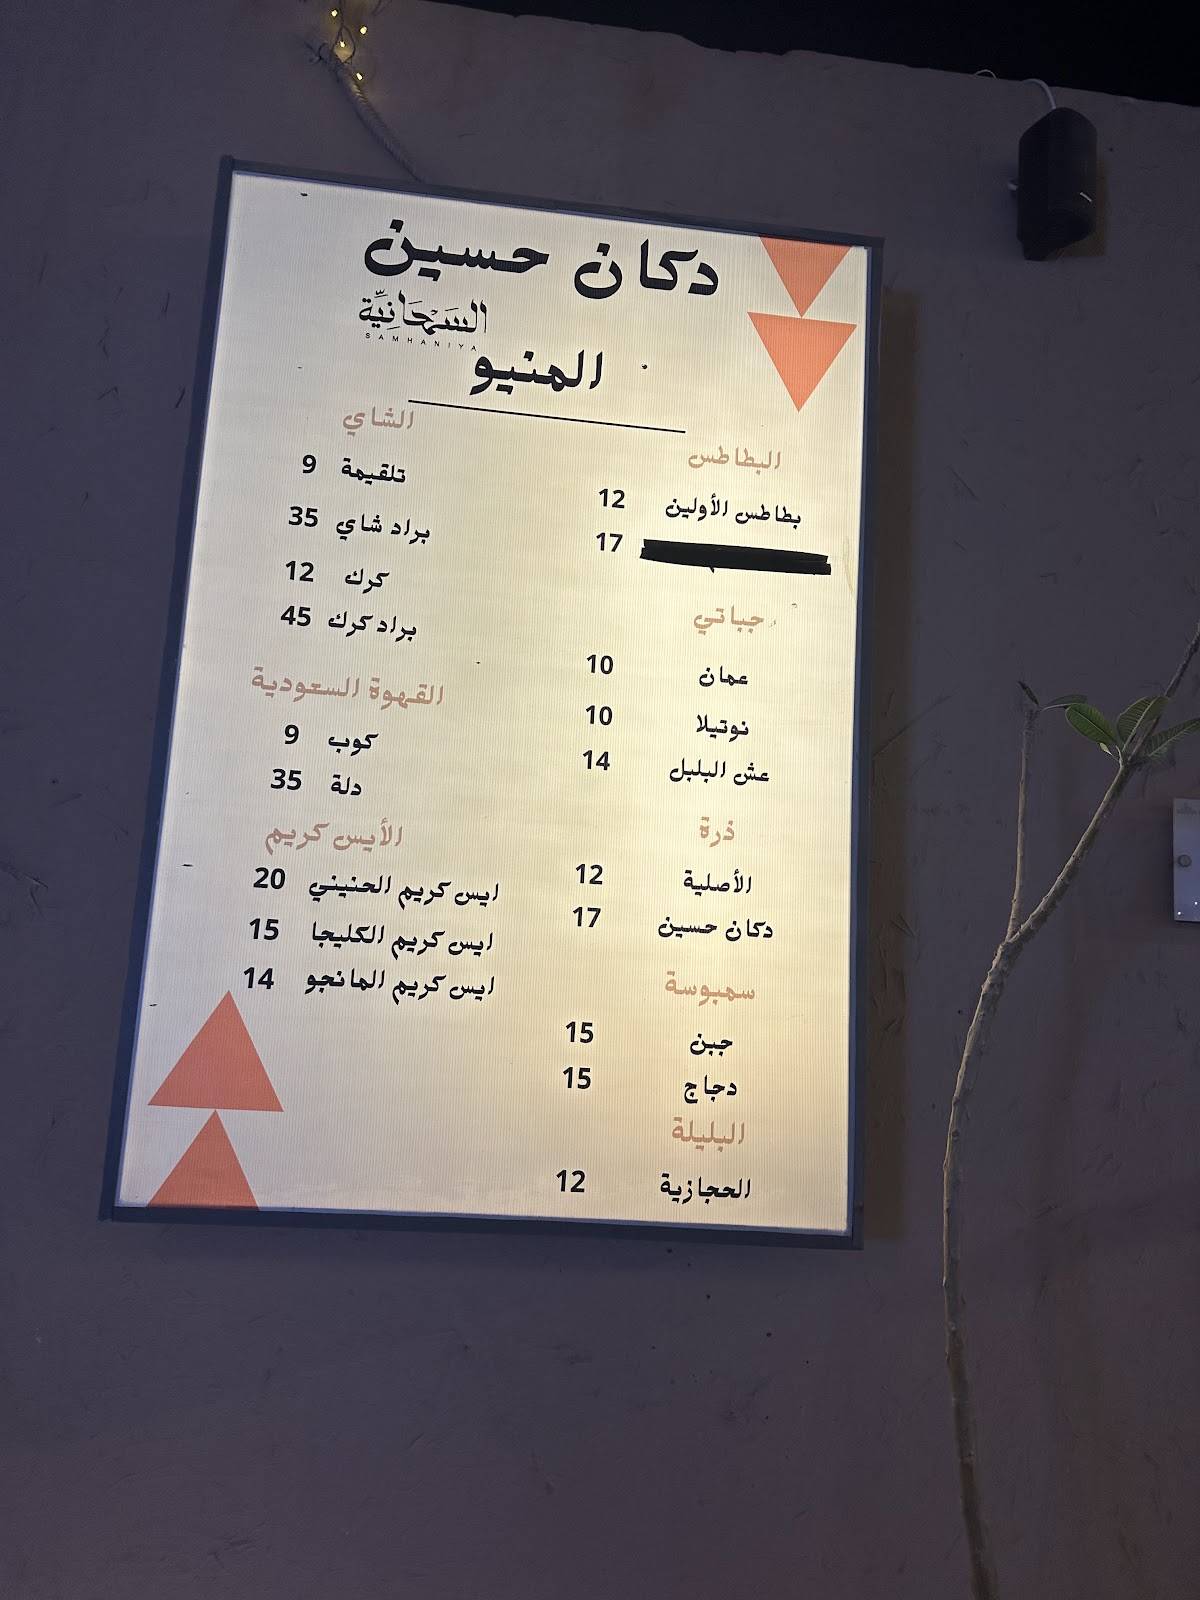 دكان حسين
السَمْحَانِيَّة
SAMHANIYA
المنيو
البطاطس
بطاطس الأولين 12
17
جباتي
عمان 10
نوتيلا 10
عش البلبل 14
ذرة
الأصلية 12
دكان حسين 17
سمبوسة
جبن 15
دجاج 15
البليلة
الحجازية 12
الشاي
تلقيمة 9
براد شاي 35
كرك 12
براد كرك 45
القهوة السعودية
كوب 9
دلة 35
الأيس كريم
ايس كريم الحنيني 20
ايس كريم الكليجا 15
ايس كريم المانجو 14